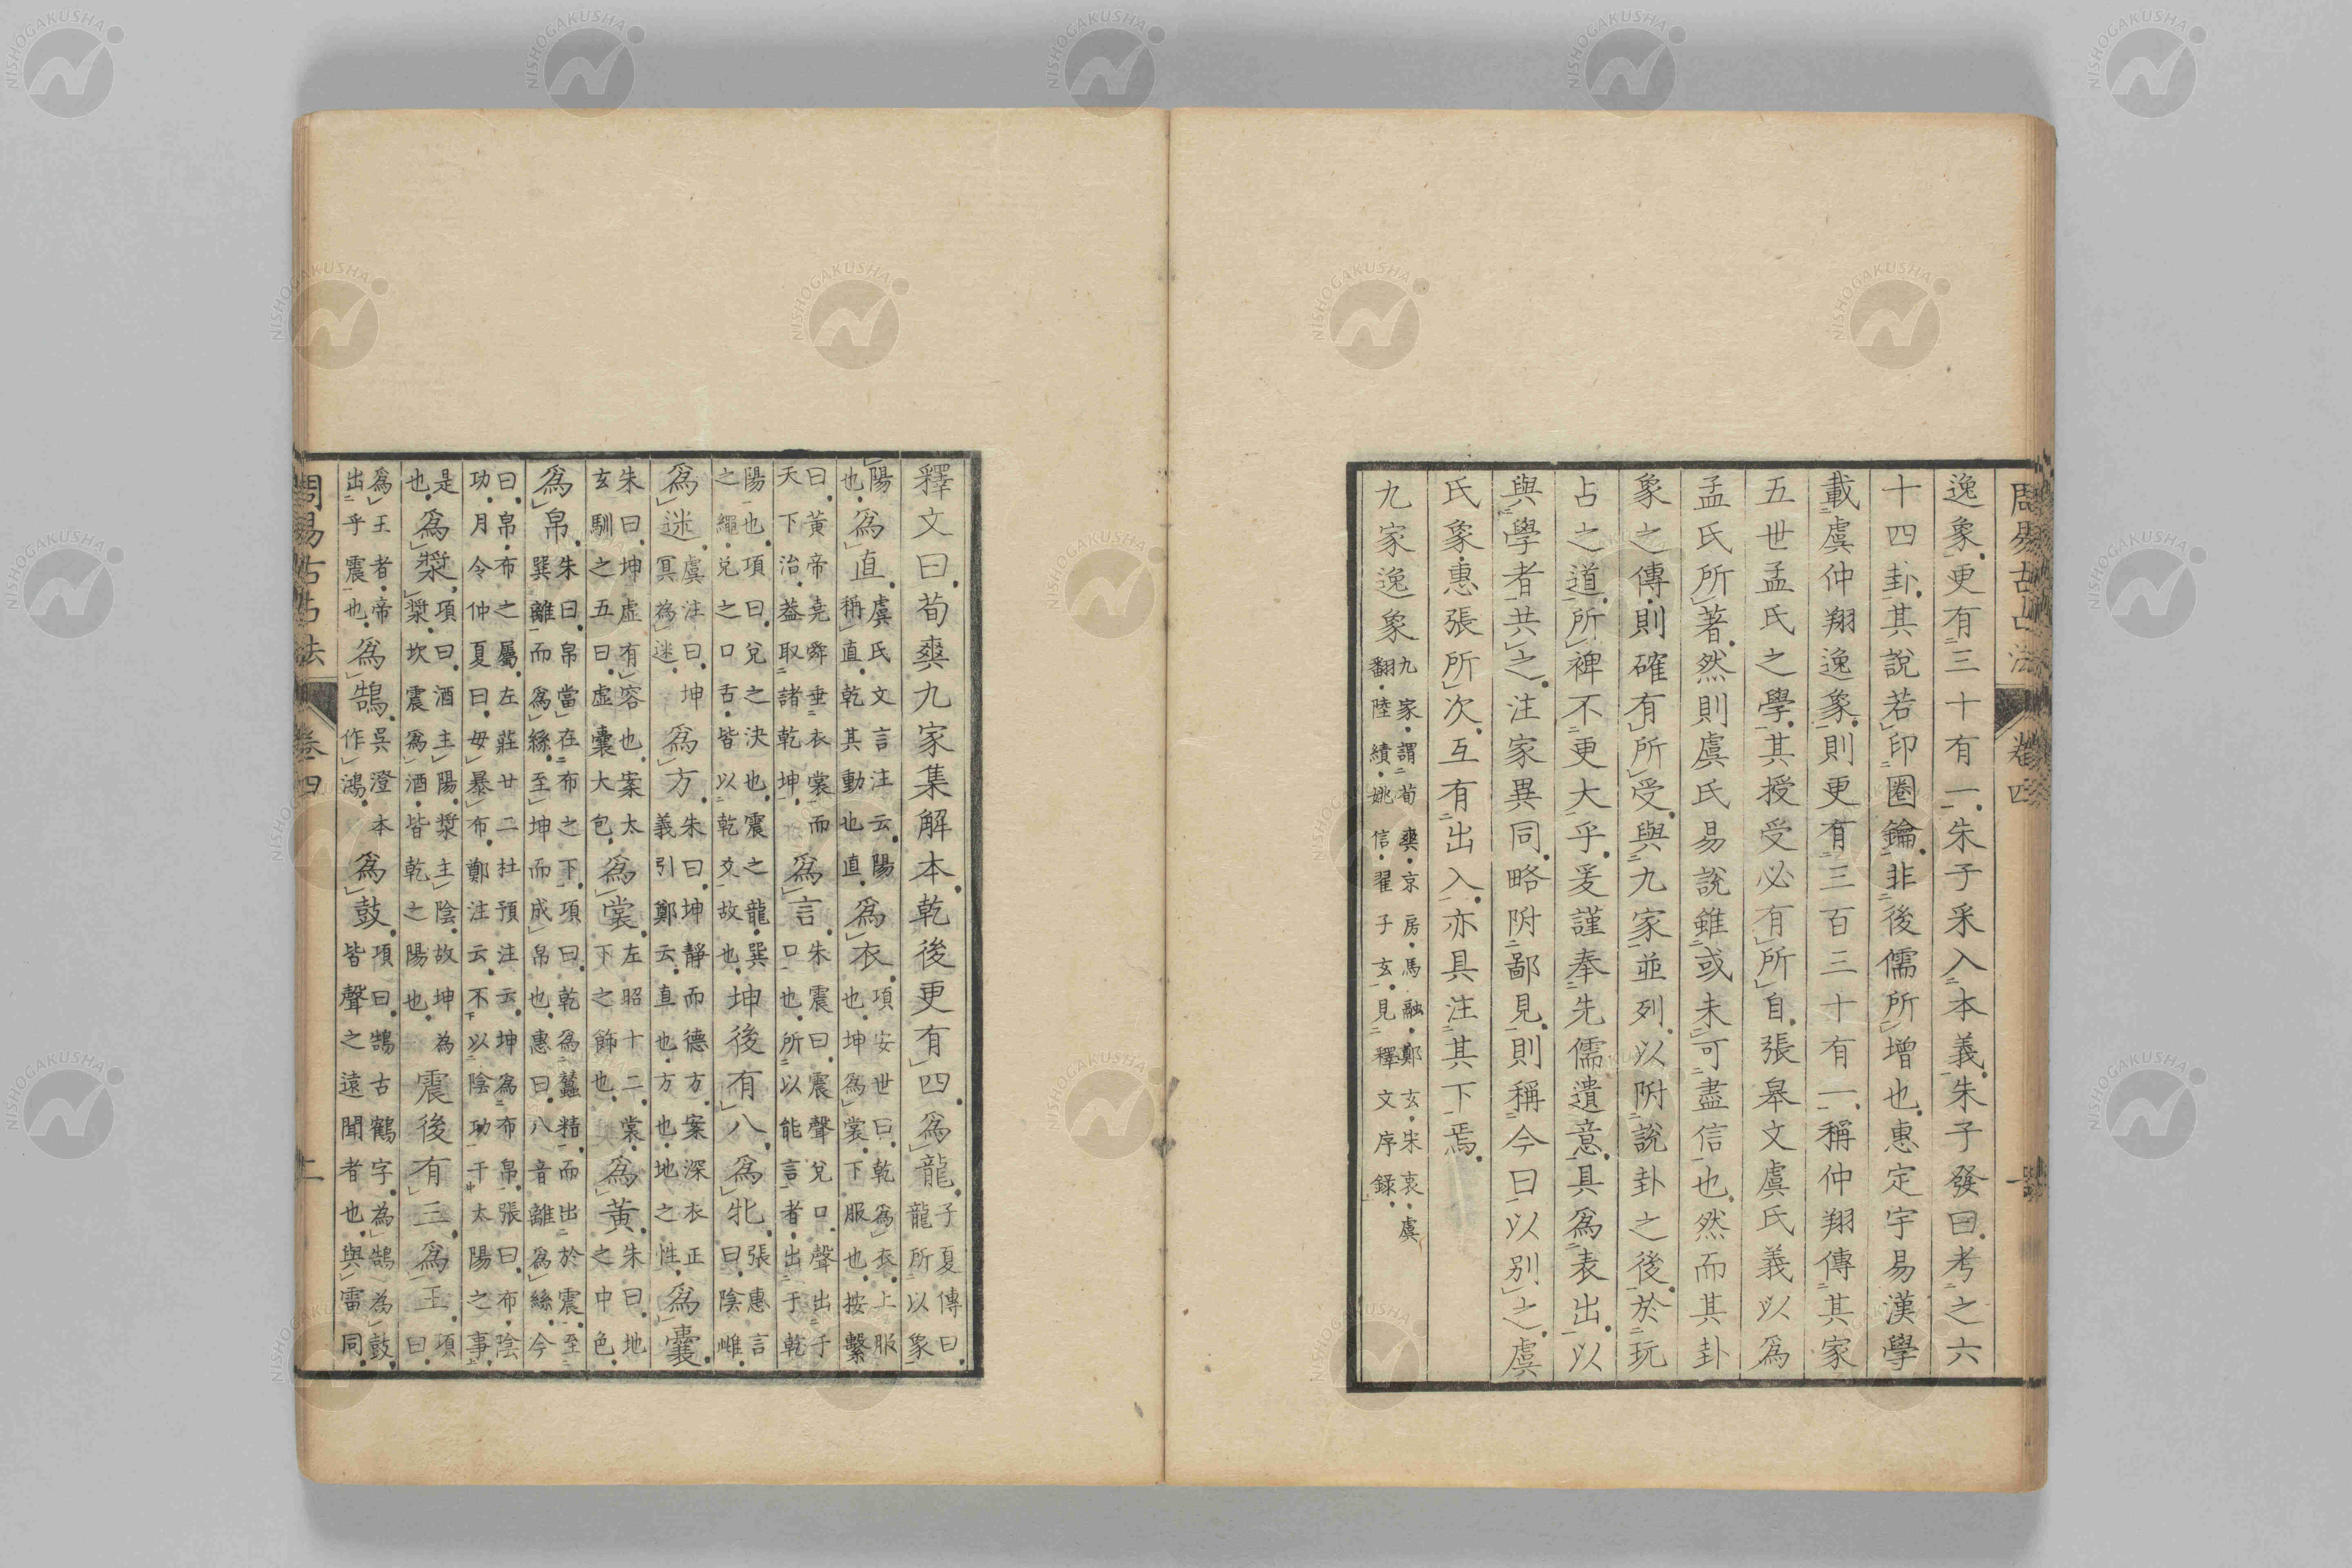 周易古占法 卷四 一
逸象更有三十有一朱子采入本義朱子發曰考之六
十四卦其說若印圈鑰非後儒所增也惠定宇易漢學
載虞仲翔逸象則更有三百三十有一稱仲翔傳其家
五世孟氏之學其授受必有所自張皋文虞氏義以為
孟氏所著然則虞氏易說雖或未可盡信也然而其卦
象之傳則確有所受與九家並列以附說卦之後於玩
占之道所裨不更大乎爰謹奉先儒遺意具為表出以
與學者共之注家異同略附鄙見則稱今曰以別之虞
氏象惠張所次互有出入亦具注其下焉
九家逸象 九家謂荀爽京房馬融鄭玄宋衷虞翻陸績姚信翟子玄見釋文序録
釋文曰荀爽九家集解本乾後更有四為龍 子夏傳曰龍所以象
陽也 為直 虞氏文言注云陽稱直乾其動也直 為衣 項安世曰乾為衣上服也坤為裳下服也按繫
曰黃帝堯舜垂衣裳而天下治葢取諸乾坤 為言 朱震曰震聲兌口聲出于口也所以能言者出于乾
陽也項曰兌之決也震之龍巽之繩兌之口舌皆以乾爻故也 坤後有八為牝 張惠言曰陰雌
為迷 虞注曰坤冥為迷 為方 朱曰坤靜而德方案深衣正義引鄭云直也方也地之性 為囊
朱曰坤虛有容也案太玄馴之五曰虛囊大包 為裳 左昭十二裳下之飾也 為黃 朱曰地之中色
為帛 朱曰帛當在布之下項曰乾為蠶精而出於震至巽離而為絲至坤而成帛也惠曰八音離為絲今
曰帛布之屬左莊廿二杜預注云坤為布帛張曰布陰功月令仲夏曰毋暴布鄭注云不以陰功干太陽之事
是也 為漿 項曰酒主陽漿主陰故坤為漿坎震為酒皆乾之陽也 震後有三為王 項曰
為王者帝出乎震也 為鵠 吳澄本作鴻 為鼓 項曰鵠古鶴字為鵠為鼓皆聲之遠聞者也與雷同
周易古占法 卷四 二